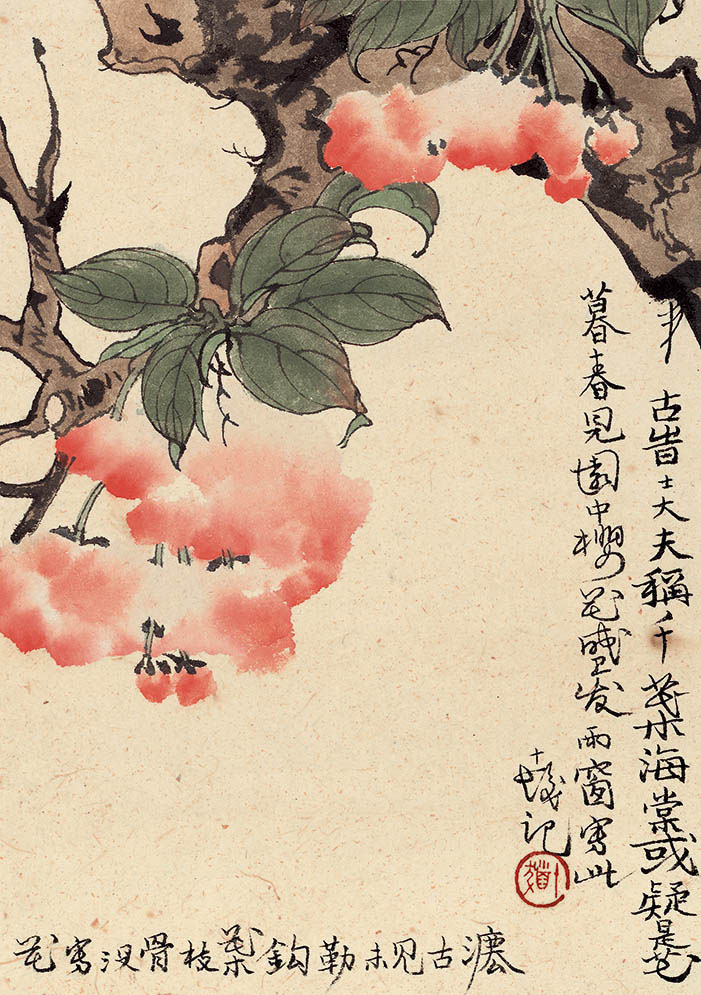 古昔士大夫稱千葉海棠或疑是花
暮春見園中櫻花盛发雨窗写此
十髮记
花写没骨枝葉鈎勒未见古灋